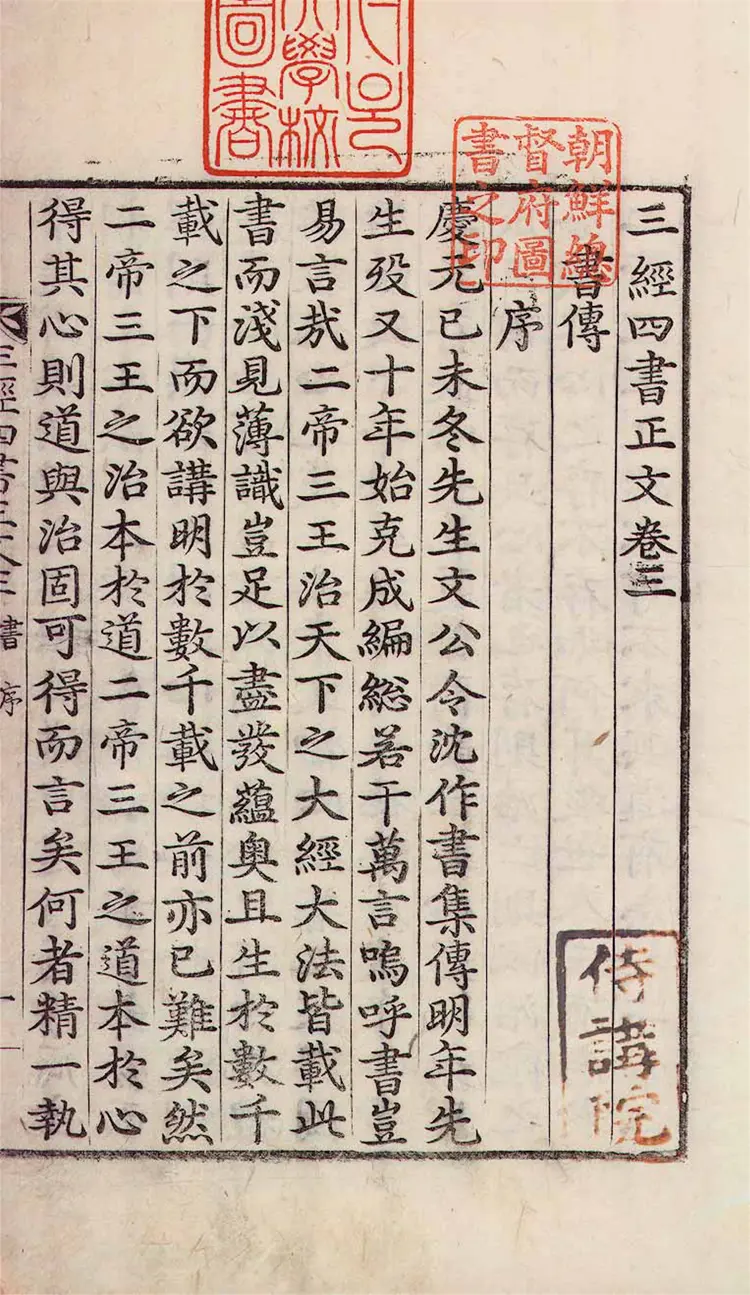 三經四書正文卷三
書傳
序
慶元已未冬先生文公令沈作書集傳明年先
生歿又十年始克成編緫若干萬言嗚呼書豈
易言㢤二帝三王治天下之大經大法皆載此
書而淺見薄識豈足以盡發蘊奧且生於數千
載之下而欲講明於數千載之前亦已難矣然
二帝三王之治本於道二帝三王之道本於心
得其心則道與治固可得而言矣何者精一執
三經四書正文三 書 序 一
朝鮮總
督府圖
書之印
大學校
圖書
侍講院